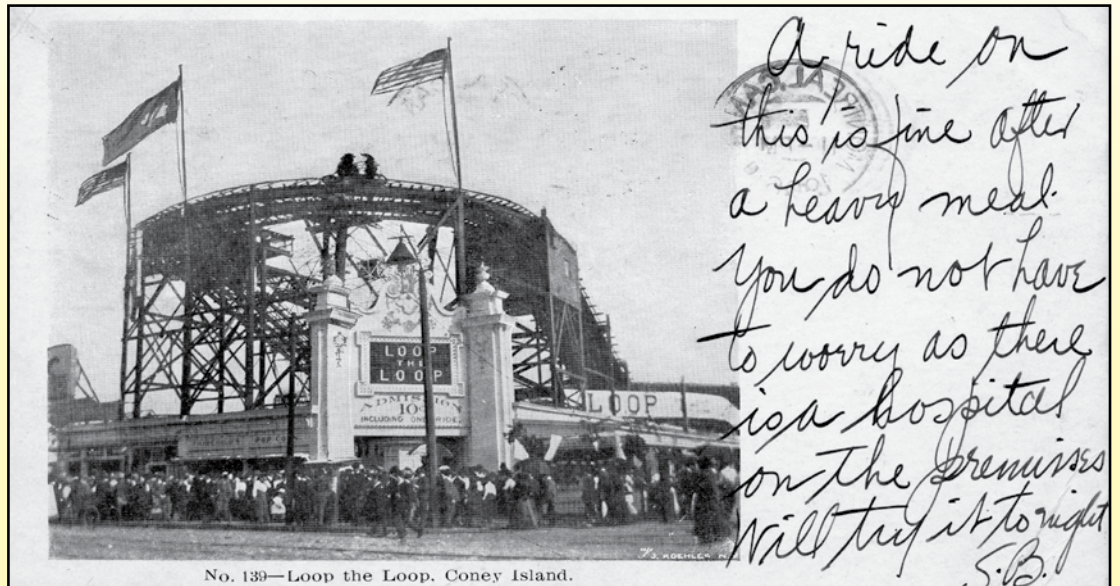 LOOP
THE
LOOP
ADMISSION
10¢
INCLUDING ONE RIDE
LOOP
J. KOEHLER N.
No. 139—Loop the Loop, Coney Island.
A ride on
this is fine after
a heavy meal.
You do not have
to worry as there
is a hospital
on the premisses
Will try it tonight
S.B.